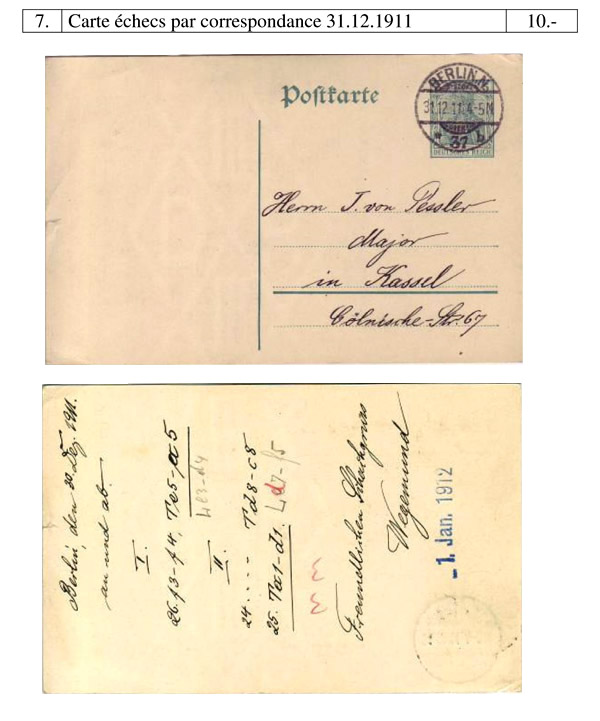 7. Carte échecs par correspondance 31.12.1911 10.-
Postkarte
BERLIN.N.
31.12.11.4-5N
* 37 b
DEUTSCHES REICH
Herrn J. von Pessler
Major
in Kassel
Cölnische-Str. 67
Berlin, den 30. Dez. 1911.
an und ab.
I.
26. f3-f4, Te5-a5
Le3-d4
II.
24. .... Td8-c8
25. Ta1-d1. Ld7-f5
Freundlichen Schachgruss
Wegemund
-1. Jan. 1912